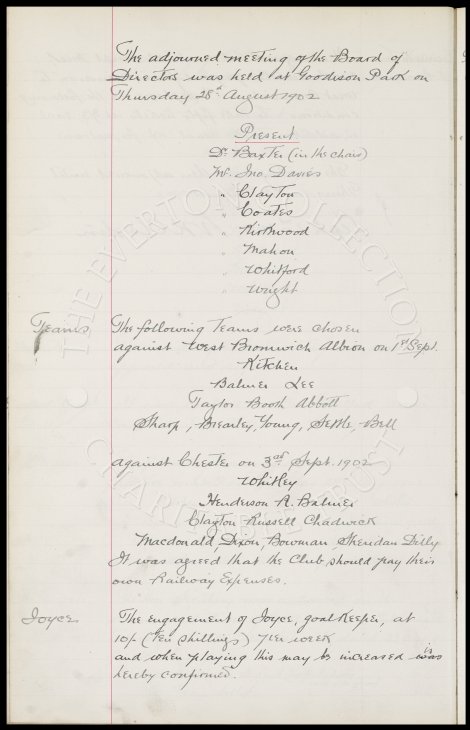 The adjourned meeting of the Board of
Directors was held at Goodison Park on
Thursday 28th August 1902
Present
Dr. Baxter (in the chair)
Mr. Jno. Davies
" Clayton
" Coates
" Kirkwood
" Mahon
" Whitford
" Wright
Teams
The following Teams were chosen
against West Bromwich Albion on 1st Sept.
Kitchen
Balmer Lee
Taylor Booth Abbott
Sharp, Brearley, Young, Settle, Bell
against Chester on 3rd Sept. 1902
Whitley
Henderson R. Balmer
Clayton Russell Chadwick
Macdonald, Dixon, Bowman, Sheridan Dilly
It was agreed that the Club should pay their
own Railway Expenses.
Joyce
The engagement of Joyce, goal Keeper, at
10/- (Ten shillings) per week
and when playing this may be increased is was
hereby confirmed.
THE EVERTON COLLECTION
CHARITABLE TRUST